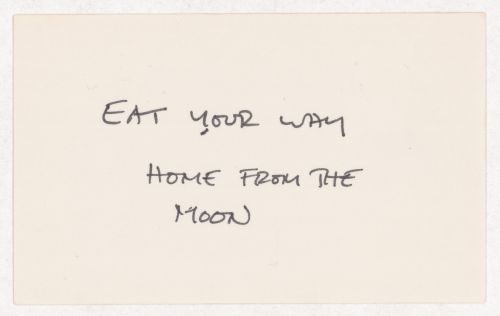 EAT YOUR WAY
HOME FROM THE
MOON